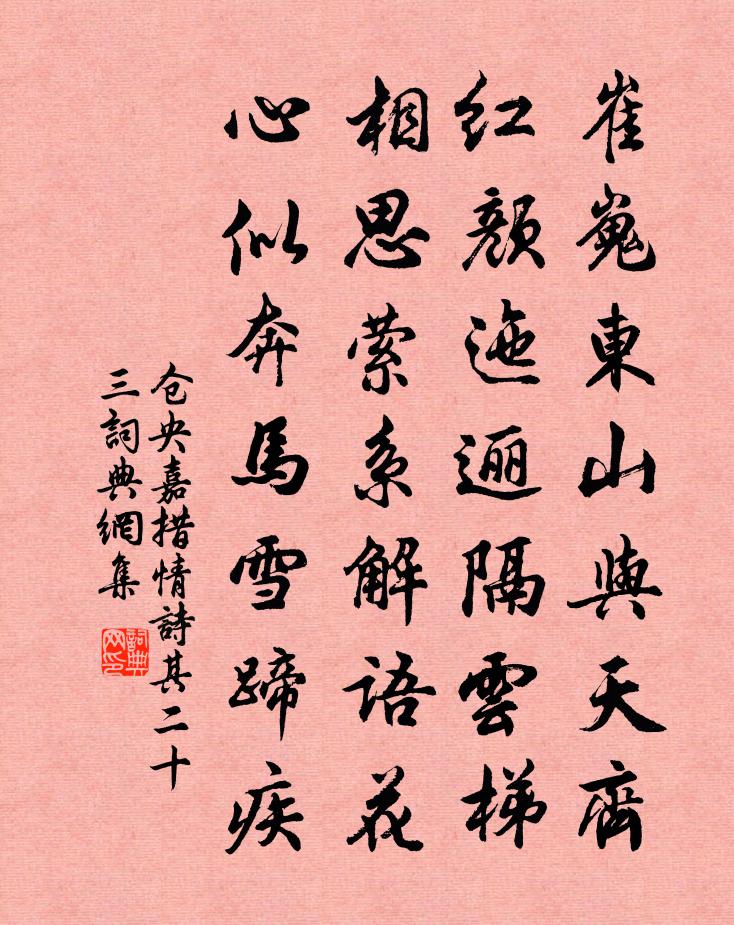 崔嵬東山與天齊
红颜迤逦隔雲梯
相思萦系解语花
心似奔馬雪蹄疾
仓央嘉措情詩其二十
三詞典網集
詞典
网印